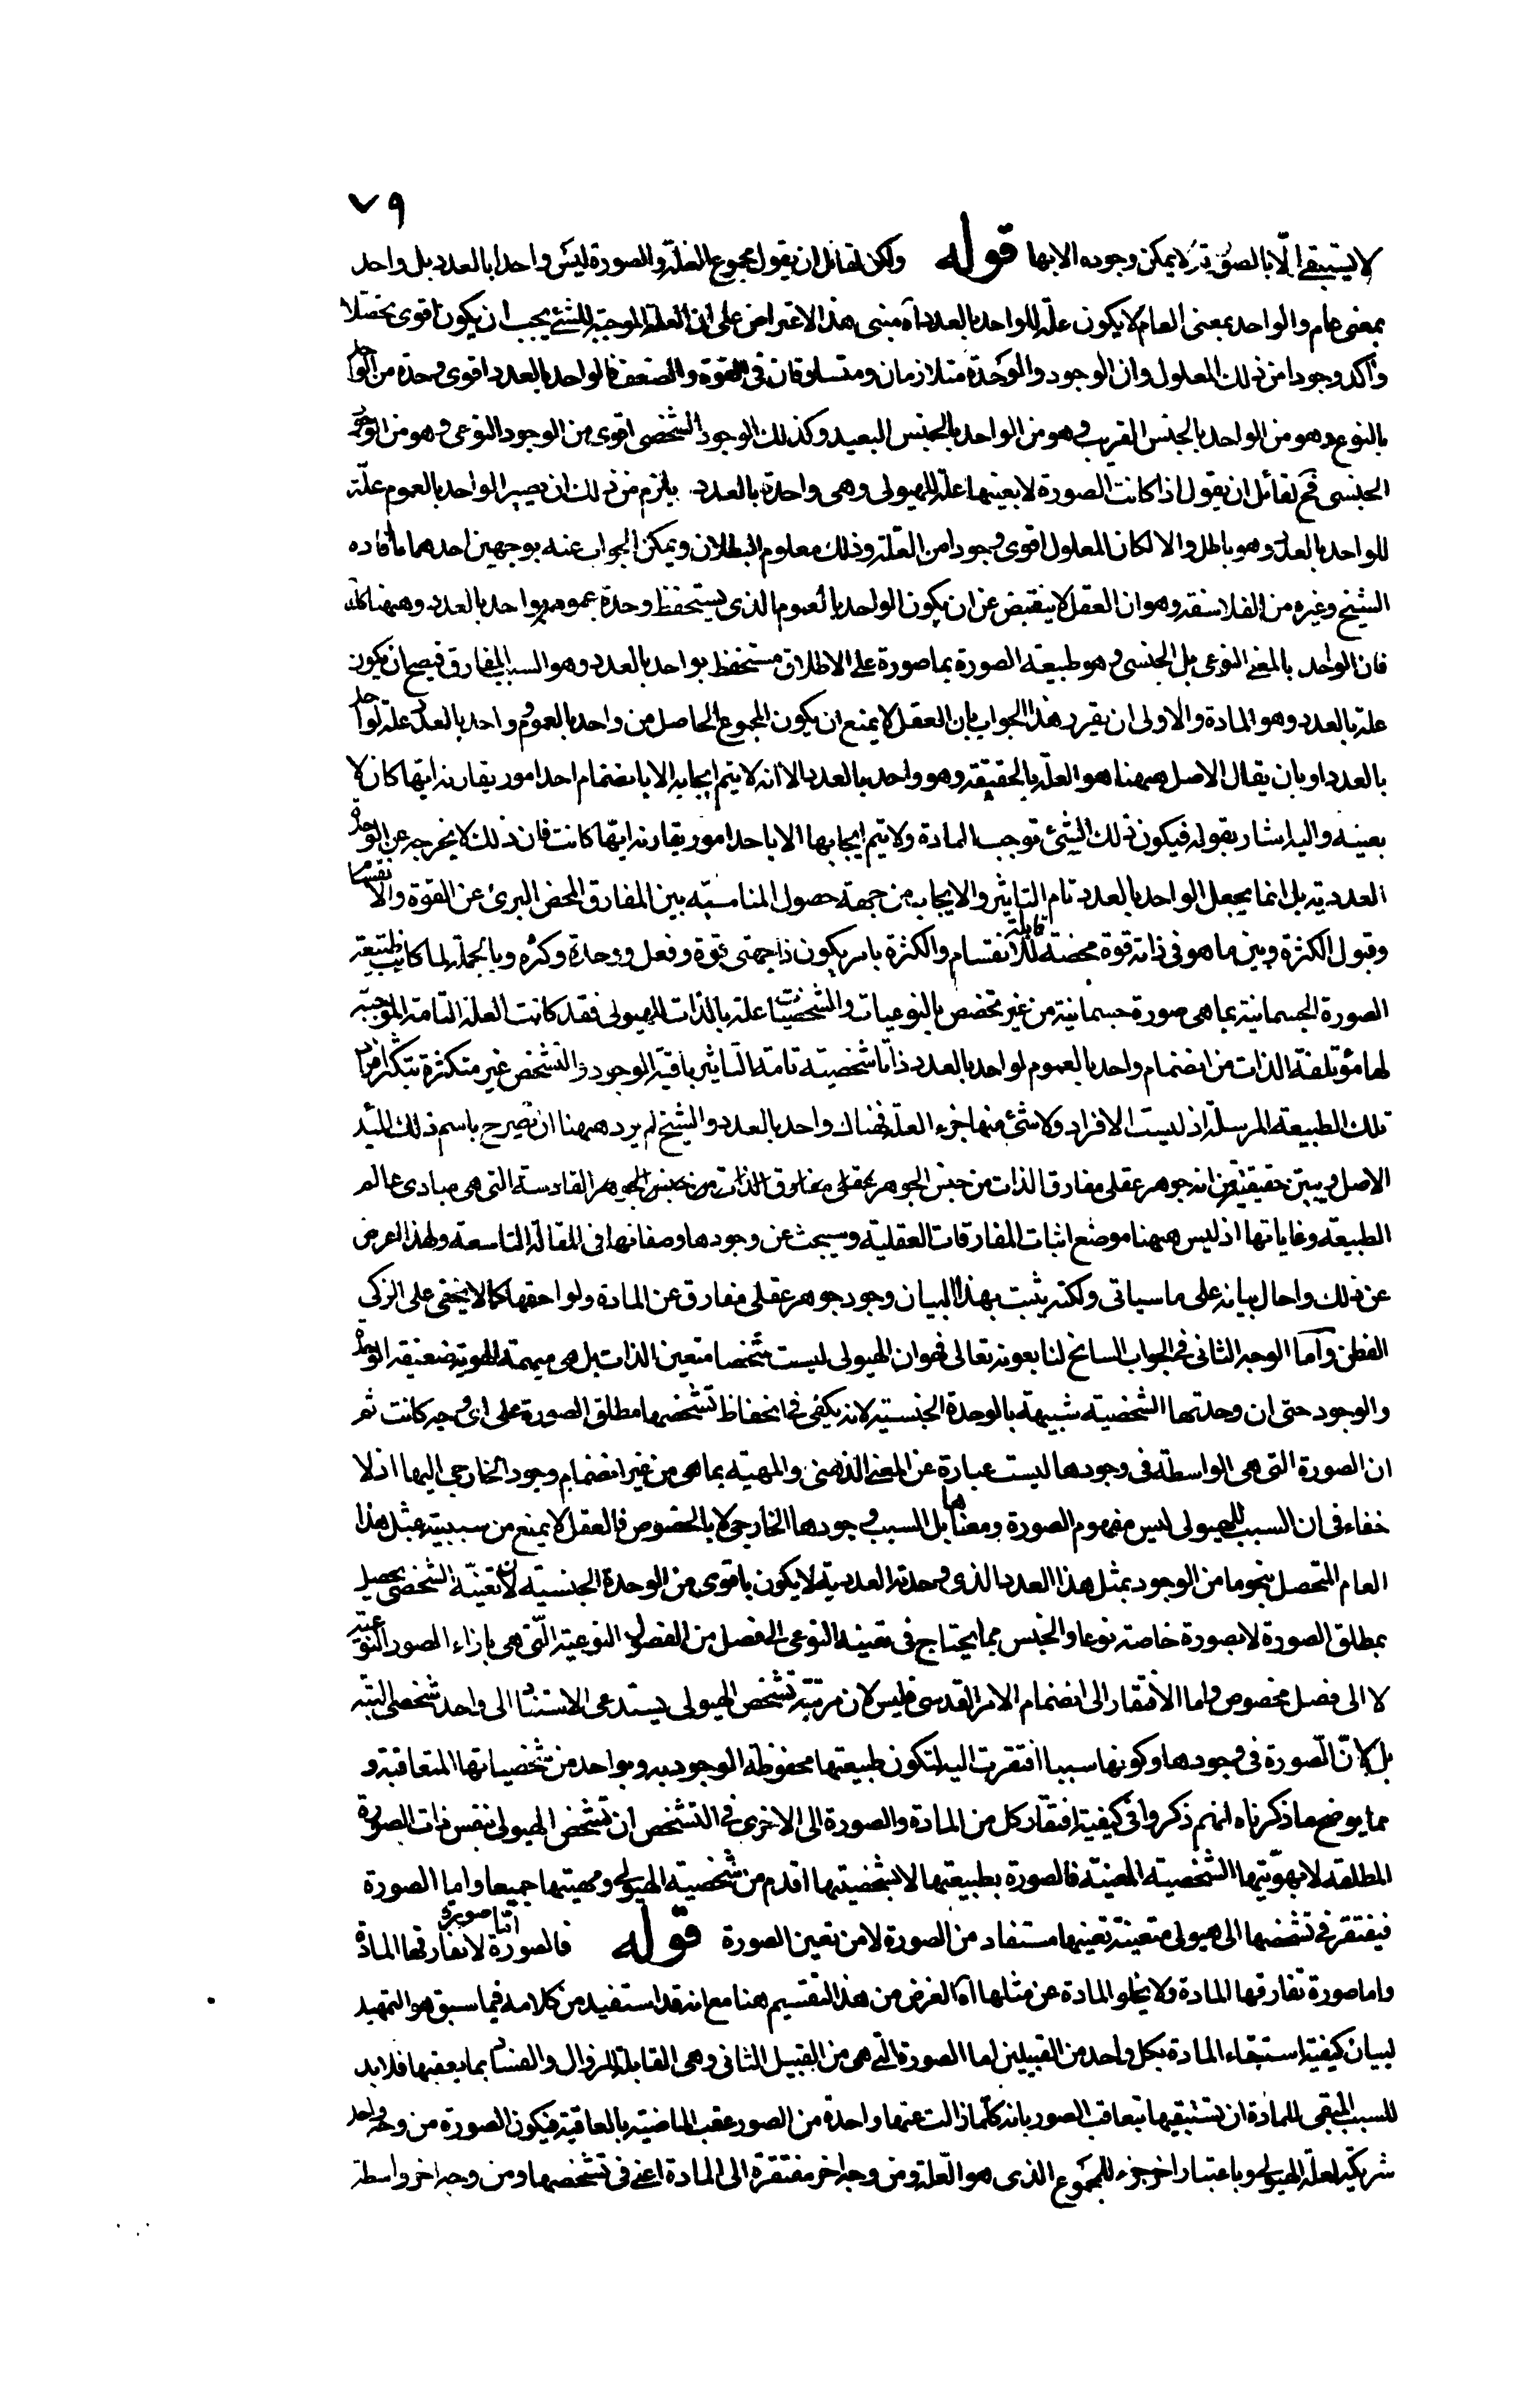 ٧٩
لا يستبقى الّا بالصورة لا يمكن وجوده الا بها قوله ولكن لقائل ان يقول مجموع العلة والصورة ليس واحدا بالعدد بل واحد
بمعنى عام والواحد بمعنى العام لا يكون علّة للواحد بالعدد اه مبنى هذا الاعتراض على ان العلة الموجبة للشئ يجب ان يكون اقوى تحصّلا
وآكد وجودا من ذلك المعلول وان الوجود والوحدة متلازمان ومتساوقان فى القوة والضعف فالواحد بالعدد اقوى وحدة من الواحد
بالنوع وهو من الواحد بالجنس القريب وهو من الواحد بالجنس البعيد وكذلك الوجود الشخصى اقوى من الوجود النوعى وهو من الوجود
الجنسى فح لقائل ان يقول اذا كانت الصورة لا بعينها علّة للهيولى وهى واحدة بالعدد يلزم من ذلك ان يصير الواحد بالعموم علّة
للواحد بالعدد وهو باطل والا لكان المعلول اقوى وجودا من العلّة وذلك معلوم البطلان ويمكن الجواب عنه بوجهين احدهما ما افاده
الشيخ وغيره من الفلاسفة وهو ان العقل لا ينقبض عن ان يكون الواحد بالعموم الذى يستحفظ وحدة عمومه بواحد بالعدد وههنا كك
فان الواحد بالمعنى النوعى بل الجنسى وهو طبيعة الصورة بما صورة على الاطلاق مستحفظ بواحد بالعدد وهو السبب المفارق فيصح ان يكون
علة بالعدد وهو المادة والاولى ان يقرر هذا الجواب بان العقل لا يمنع ان يكون المجموع الحاصل من واحد بالعموم واحد بالعدد علة لواحد
بالعدد او بان يقال الاصل ههنا هو العلّة بالحقيقة وهو واحد بالعدد الا انه لا يتم ايجابه الا بانضمام احد امور يقارنه ايتها كان لا
بعينه واليه اشار بقوله فيكون ذلك الشئ توجب المادة ولا يتم ايجابها الا باحد امور يقارنه ايتها كانت فان ذلك لا يخرجه عن الوحدة
العددية بل انما يجعل الواحد بالعدد تام التاثير والايجاب من جهة حصول المناسبة بين المفارق المحض البرئ عن القوة والانقسام
وقبول الكثرة وبين ما هو فى ذاته قوة محضة قابلة للانقسام والكثرة بامر يكون ذا جهتى قوة وفعل ووحدة وكثرة وبالجملة لما كانت طبيعة
الصورة الجسمانية بما هى صورة جسمانية من غير تخصص بالنوعيات والشخصيات علة بالذات للهيولى فقد كانت العلة التامة الموجبة
لها مؤتلفة الذات من انضمام واحد بالعموم لواحد بالعدد ذاتا شخصية تامة التاثير باقية الوجود والتشخص غير متكثرة بتكثر افراد
تلك الطبيعة المرسلة اذ ليست الافراد ولا شئ منها جزء العلة فهناك واحد بالعدد والشيخ لم يرد ههنا ان يصرح باسم ذلك الشئ
الاصل ويبين حقيقته من انه جوهر عقلى مفارق الذات من جنس الجوهر عقلى مفارق الذات من جنس الجوهر القادسة التى هى مبادى عالم
الطبيعة وغاياتها اذ ليس ههنا موضع اثبات المفارقات العقلية وسيبحث عن وجودها وصفاتها فى المقالة التاسعة ولهذا اعرض
عن ذلك واحال بيانه على ما سياتى ولكنه يثبت بهذا البيان وجود جوهر عقلى مفارق عن المادة ولواحقها كما لا يخفى على الزكى
الفطن وأما الوجه الثانى فى الجواب السانح لنا بعونه تعالى فهو ان الهيولى ليست شخصا متعين الذات بل هى مبهمة الهوية ضعيفة الوحدة
والوجود حتى ان وحدتها الشخصية شبيهة بالوحدة الجنسية لانه يكفى فى انحفاظ تشخصها مطلق الصورة على اى وجه كانت ثم
ان الصورة التى هى الواسطة فى وجودها ليست عبارة عن المعنى الذهنى والمهية بما هى من غير انضمام وجود الخارجى اليها اذ لا
خفاء فى ان السبب للهيولى ليس مفهوم الصورة ومعناها بل السبب وجودها الخارجى لا بالخصوص فالعقل لا يمنع من سببية مثل هذا
العام المتحصل بنحو ما من الوجود بمثل هذا العدد الذى وحدته العددية لا يكون باقوى من الوحدة الجنسية لان تعينه الشخصى يحصل
بمطلق الصورة لا بصورة خاصة نوعا والجنس مما يحتاج فى تعينه النوعى الى فصل من الفصول النوعية التى هى بازاء الصور النوعية
لا الى فصل مخصوص واما الافتقار الى انضمام الامر القدسى فليس لان مرتبة تشخص الهيولى يستدعى الاستناد الى واحد شخصى البتة
بل لانّ الصورة فى وجودها وكونها سببا افتقرت اليه لتكون طبيعتها محفوظة الوجود به وبواحد من شخصياتها المتعاقبة و
مما يوضح ما ذكرناه انهم ذكروا فى كيفية افتقار كل من المادة والصورة الى الاخرى فى التشخص ان تشخص الهيولى بنفس ذات الصورة
المطلقة لا بهويتها الشخصية المعينة فالصورة بطبيعتها لا بشخصيتها اقدم من شخصية الهيولى ومهيتها جميعا واما الصورة
فيفتقر فى تشخصها الى هيولى متعينة تعينها مستفاد من الصورة لا من تعين الصورة قوله فالصورة اما صورة لا تفارقها المادة
واما صورة تفارقها المادة ولا يخلو المادة عن مثلها اه الغرض من هذا التقسيم هنا مع انه قد استفيد من كلامه فيما سبق هو التمهيد
لبيان كيفية استبقاء المادة بكل واحد من القبيلين اما الصورة التى هى من القبيل الثانى وهى القابلة للزوال والفساد بما يعقبها فلا بد
للسبب المبقى للمادة ان يستبقيها بتعاقب الصور بانه كلما زالت عنها واحدة من الصور عقب الماضية بالعاقبة فيكون الصورة من وجه واحد
شريكة لعلة الهيولى وباعتبار اخر جزء للمجموع الذى هو العلة ومن وجه اخر مفتقرة الى المادة اعنى فى تشخصها ومن وجه اخر واسطة